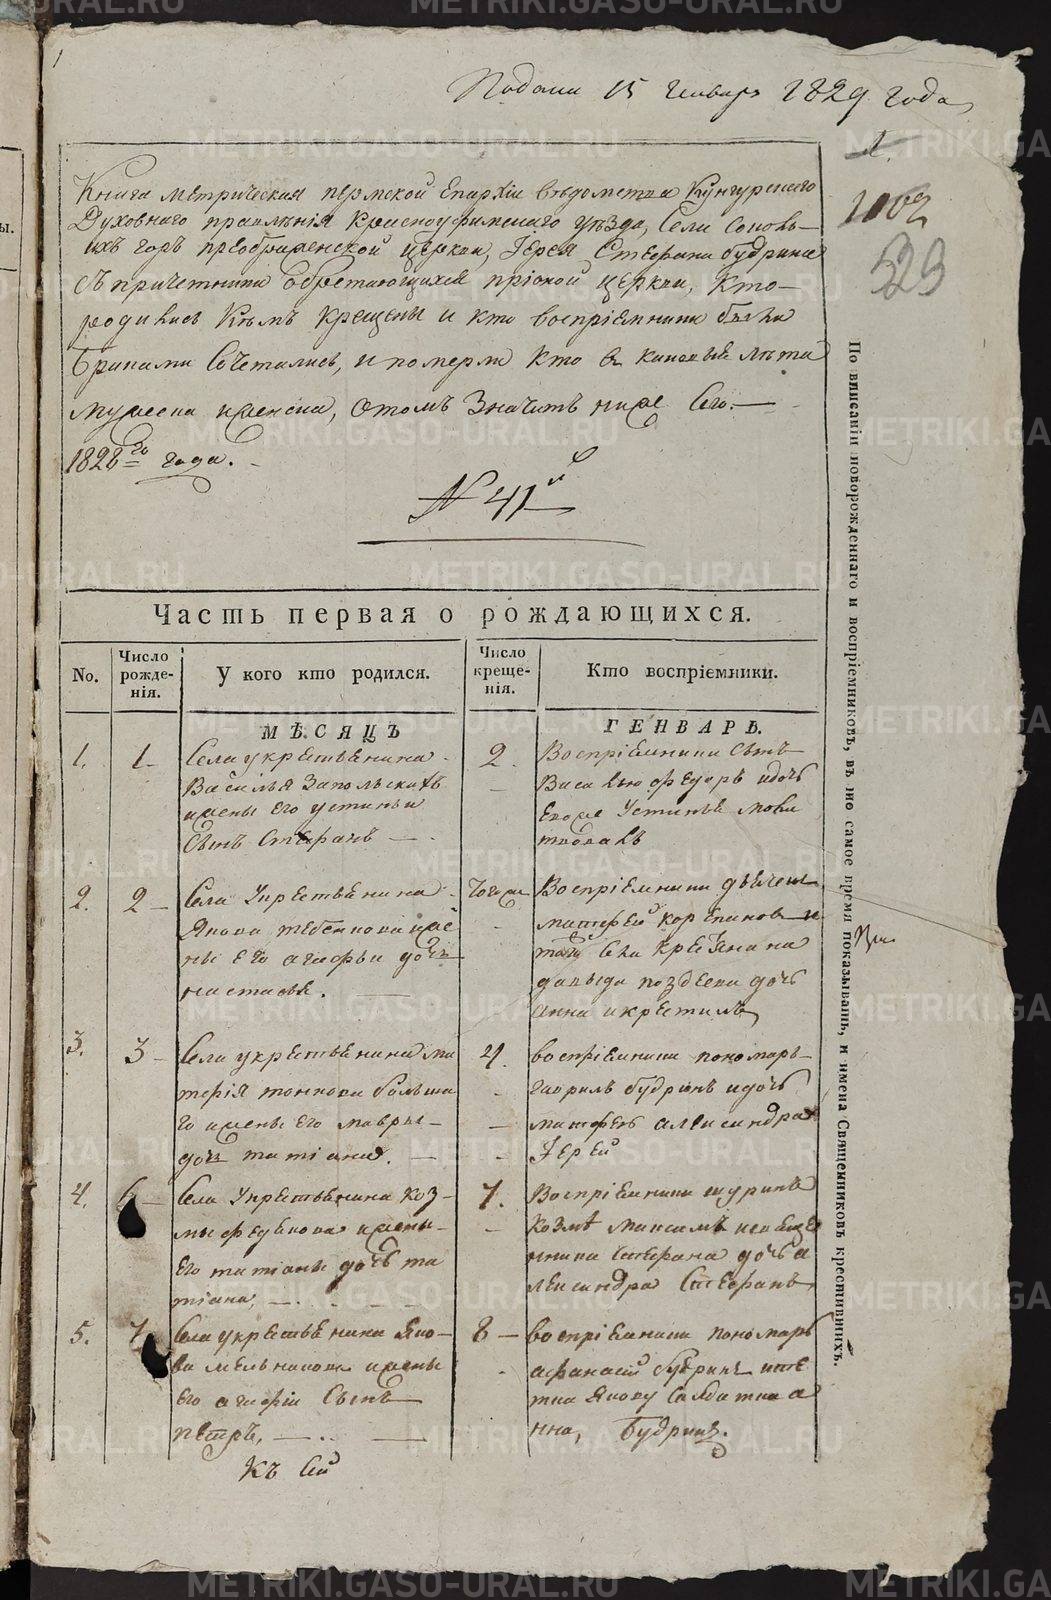 Подана 15 генваря 1829 года
1.
1002
529
Книга метрическая пермской Епархіи ведомства Кунгурскаго
Духовнаго правленія Красноуфимскаго уѣзда, Села Соколь-
ихъ горъ преображенской церкви, Іерея Стефана будрина
съ причетники обретающихся пріоной церкви, Кто-
родились Кѣмъ крещены и кто воспріемники были
браками сочетались, и померли кто в каковыя лѣта
мужеска и женска, о томъ Значитъ ниже сего.—
1828го года.
№ 41й
Часть первая о рождающихся.
No.
Число рожде-нія.
У кого кто родился.
Число креще-нія.
Кто воспріемники.
МѢСЯЦЪ
ГЕНВАРЬ.
1. 1
Села у крестьянина
Василья Запольскихъ
жены его устиньи
сынъ Стефанъ —
2
Воспріемники сынъ
Василью федоръ и дочь
Устинье
2. 2
Села У крестьянина
Якова жe
ны его агафьи дочь
настасья.
тогожъ
Воспріемники
матфей корепановъ и
тогожъ села крестьянина
давыда поздеева дочь
анна и крестилъ
3. 3
Села у крестьянина ма
терія больша
го жены его мавры
дочь татіана.
4.
воспріемники пономарь
гаврилъ будринъ и дочь
матфея александра
Іерей
4. 6
Села У крестьянина коз-
мы жены
его татіаны дочь та
тіана,
7.
Воспріемники шуринъ
козмѣ максимъ и священ
ника Стефана дочь а
лександра Стефанъ
5. 7
Села у крестьянина Яко-
ва мельникова жены
его агафіи сынъ
петръ,
8
воспріемники пономарь
афанасій будринъ и те
тка Якову солдатка а
нна, Будринъ.
Къ сей
По вписаніи новорожденнаго и воспріемниковъ, въ то самое время показывать, и имена Священниковъ крестившихъ.
METRIKI.GASO-URAL.RU